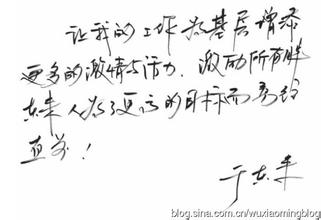 让我的工作为基层增添
更多的激情与活力,激励所有胖
东来人为了更高的目标而勇往
直前!
于东来
blog.sina.com.cn/wuxiaomingblog